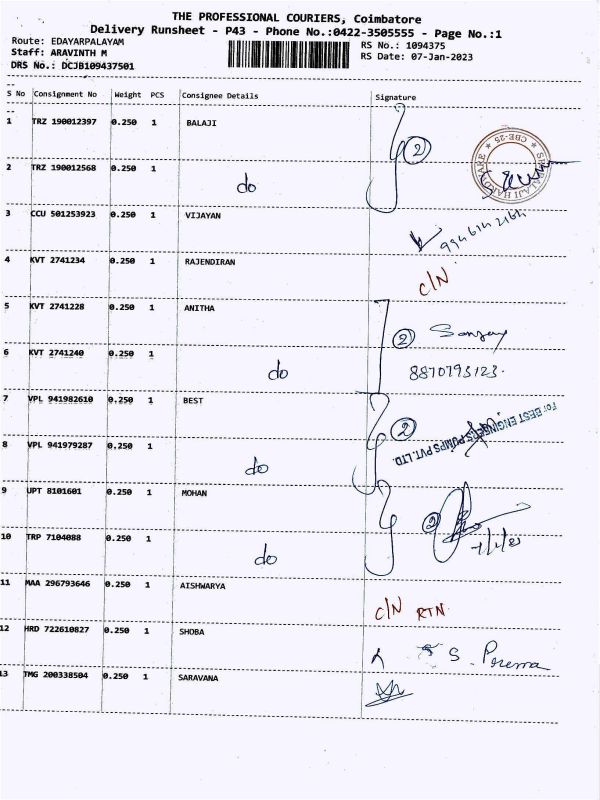 THE PROFESSIONAL COURIERS, Coimbatore
Delivery Runsheet - P43 - Phone No.:0422-3505555 - Page No.:1
Route: EDAYARPALAYAM
Staff: ARAVINTH M
DRS No.: DCJB109437501
RS No.: 1094375
RS Date: 07-Jan-2023
S No Consignment No Weight PCS Consignee Details Signature
1 TRZ 190012397 0.250 1 BALAJI
2
2 TRZ 190012568 0.250 1 do
SRI BALAJI HARDWARE
CBE-25
3 CCU 501253923 0.250 1 VIJAYAN
4 KVT 2741234 0.250 1 RAJENDIRAN C/N
5 KVT 2741228 0.250 1 ANITHA
2 Sanjay
6 KVT 2741240 0.250 1 do 8870793123.
7 VPL 941982610 0.250 1 BEST
2 For BEST ENGINEERS PUMPS PVT. LTD.
8 VPL 941979287 0.250 1 do
9 UPT 8101601 0.250 1 MOHAN
2
10 TRP 7104088 0.250 1 do
11 MAA 296793646 0.250 1 AISHWARYA C/N RTN
12 HRD 722610827 0.250 1 SHOBA S. Prema
13 TMG 200338504 0.250 1 SARAVANA